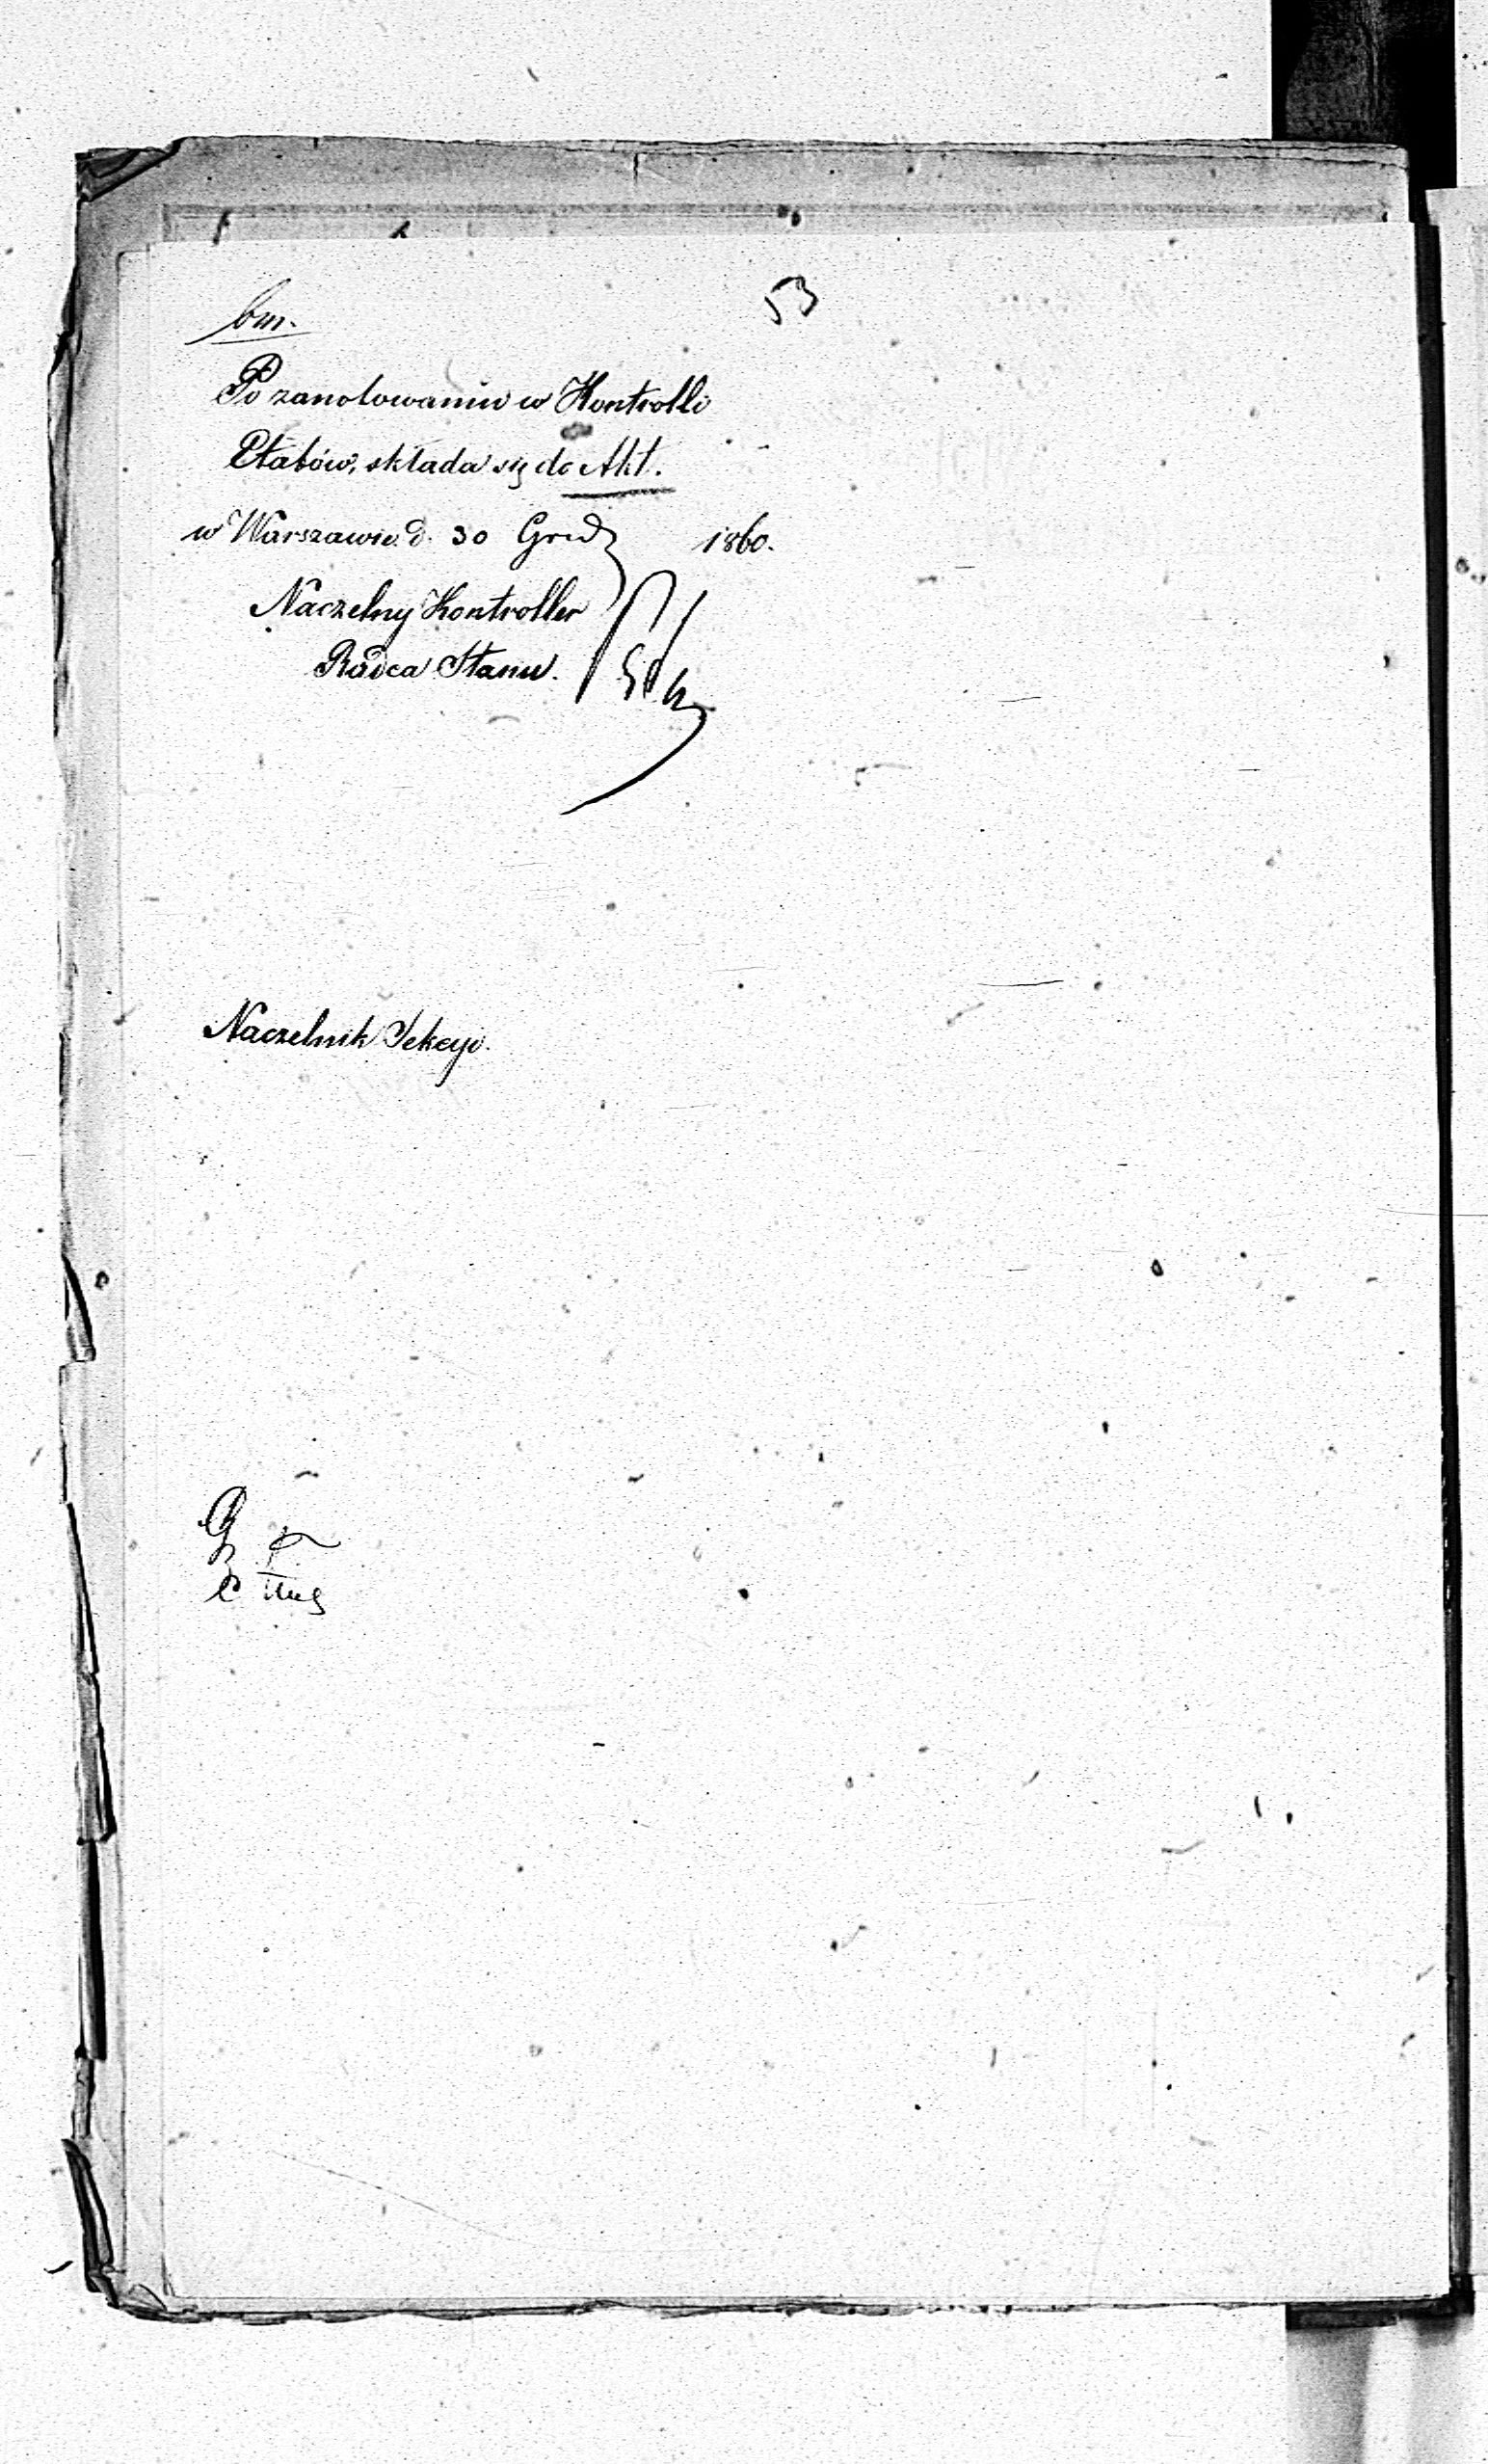 53
bm.
Po zanotowaniu w Kontrolli
Etatów, składa się do Akt.
w Warszawie d. 30 Grud 1860.
Naczelny Kontroller
Radca Stanu.
Naczelnik Sekcyi.